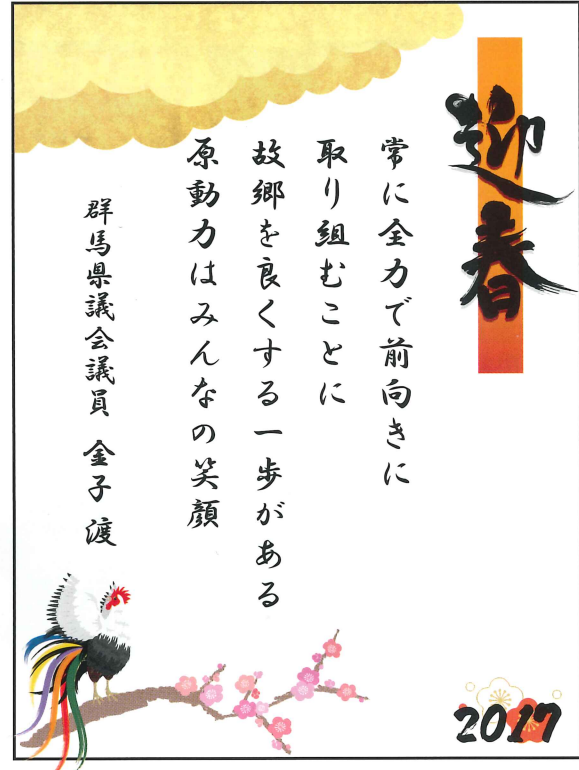 迎春
常に全力で前向きに
取り組むことに
故郷を良くする一歩がある
原動力はみんなの笑顔
群馬県議会議員 金子 渡
2017